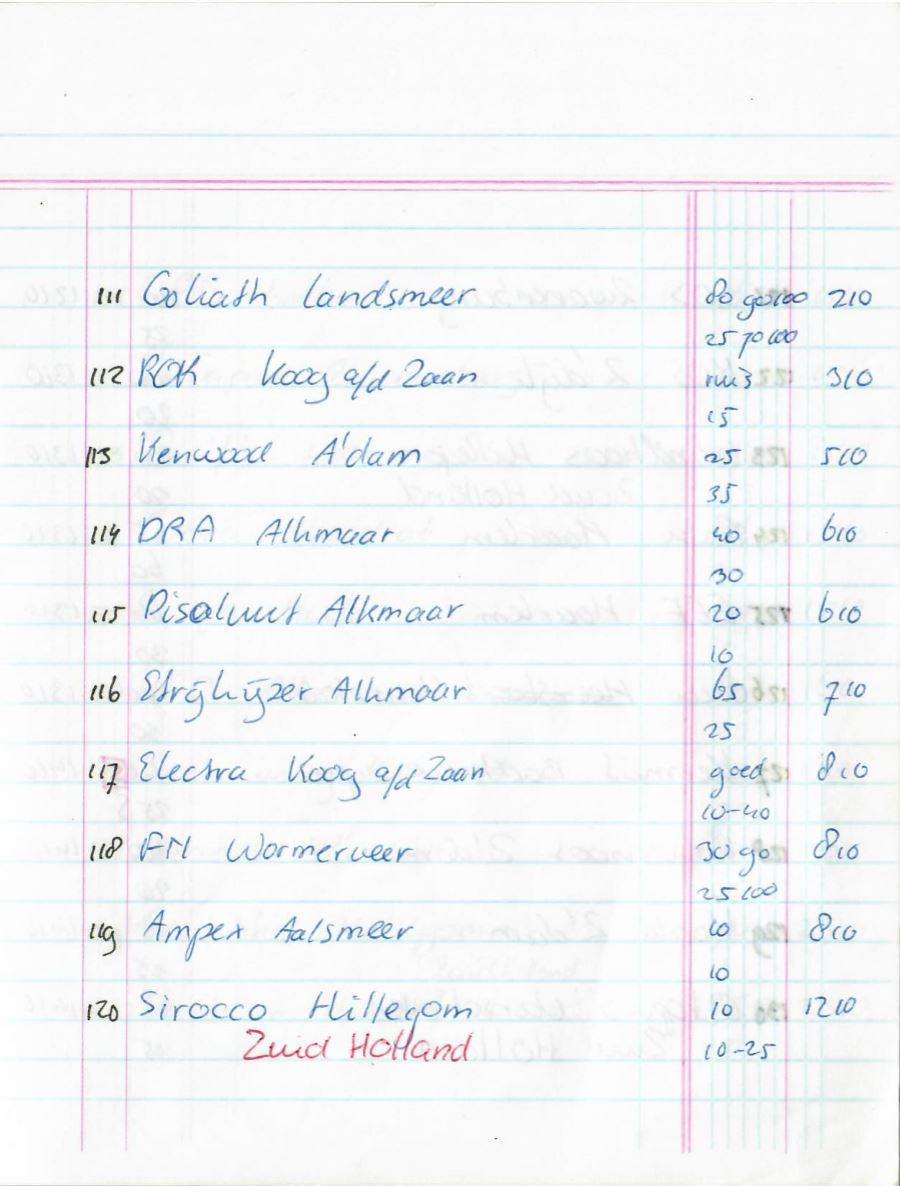 111 Goliath Landsmeer 80 90 100 210
25 70 100
112 ROK Koog a/d Zaan ruis 310
15
113 Kenwood A'dam 25 510
35
114 DRA Alkmaar 40 610
30
115 Alkmaar 20 610
10
116 Strijkijzer Alkmaar 65 710
25
117 Electra Koog a/d Zaan goed 810
10-40
118 FN Wormerveer 30 90 810
25 100
119 Ampex Aalsmeer 10 810
10
120 Sirocco Hillegom 10 1210
Zuid Holland 10-25